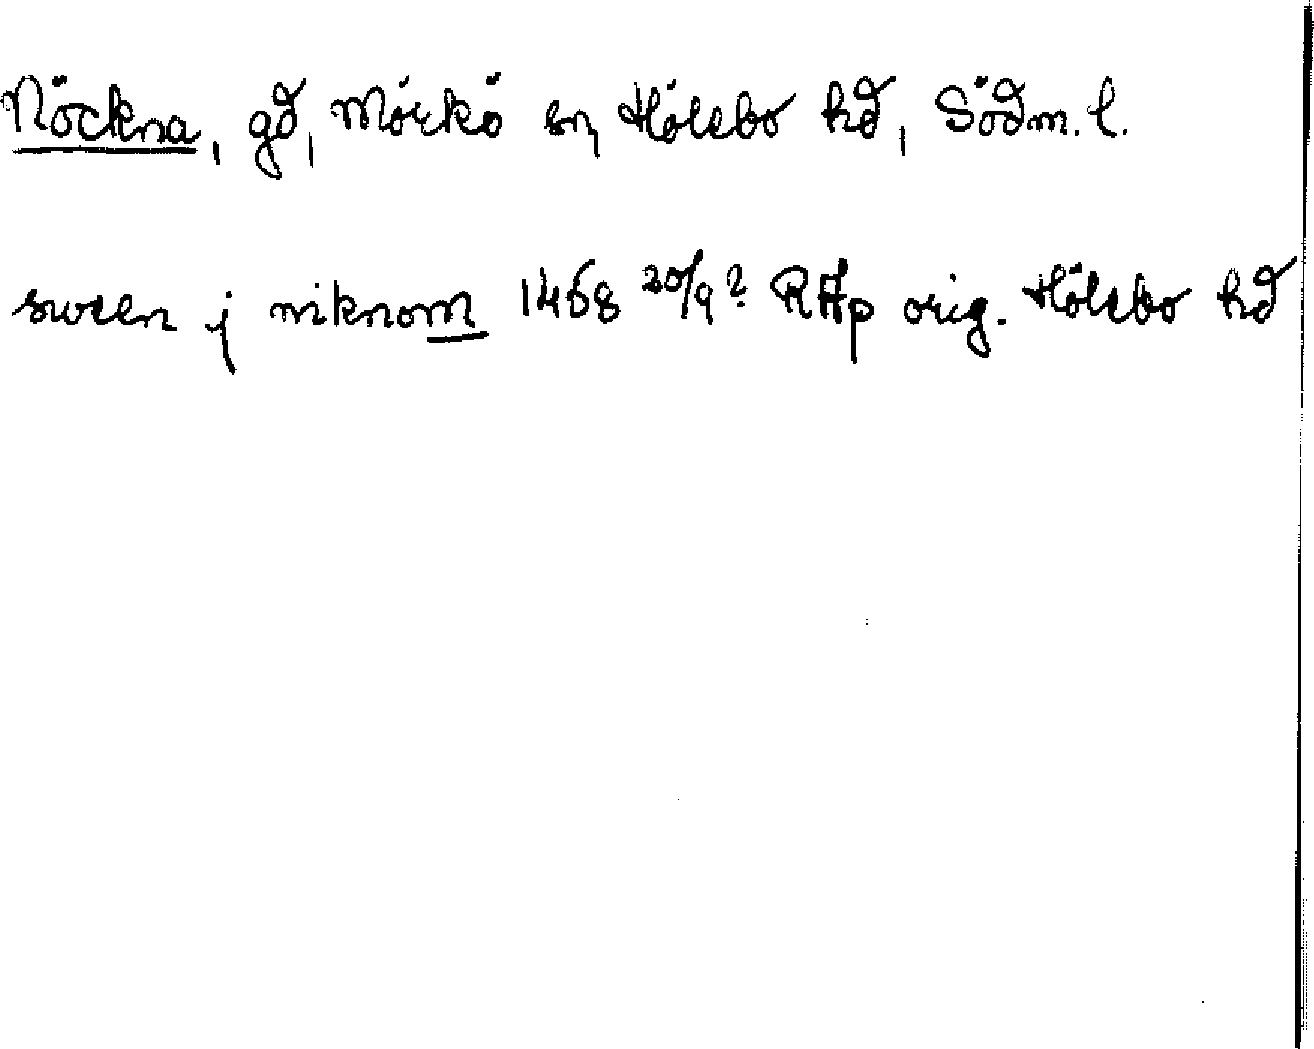 Nöckna, gd, Mörkö sn, Hölebo hd, Södm. l.
swæn j niknom 1468 20/9? RAp orig. Hölebo hd